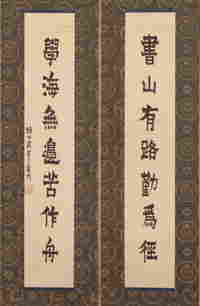 書山有路勤為徑
學海無邊苦作舟